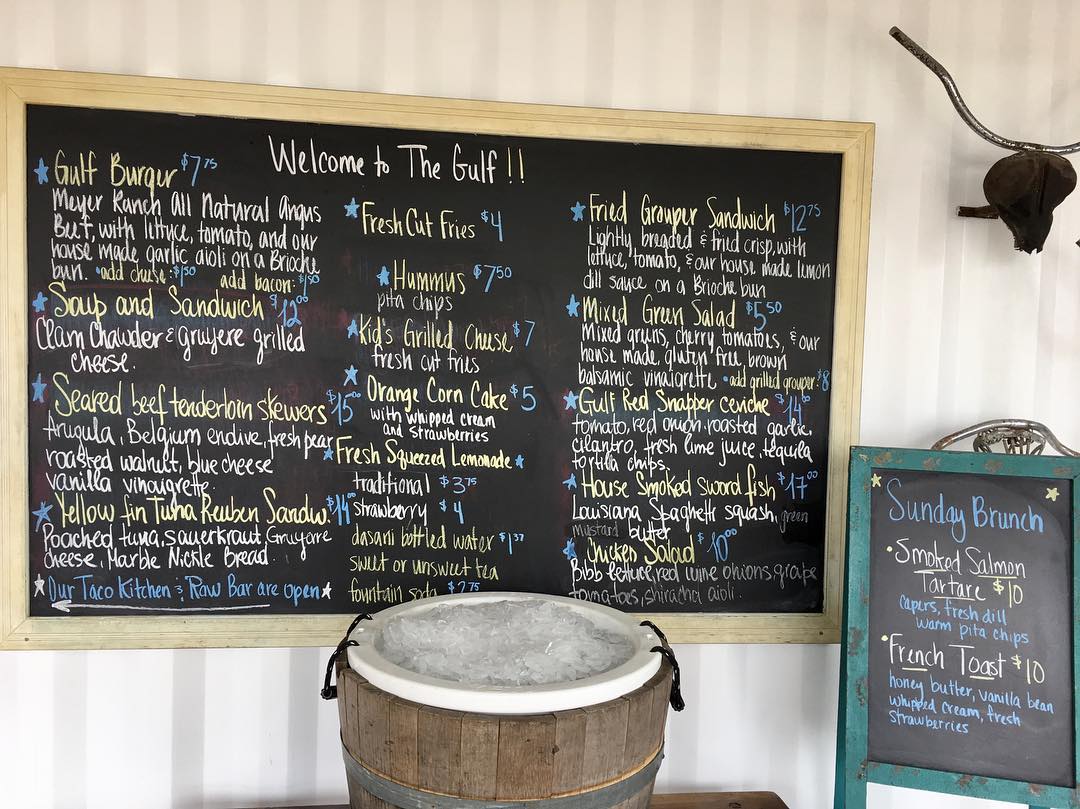 Welcome to The Gulf !!
Gulf Burger $7.75
Meyer Ranch All Natural Angus
Beef, with lettuce, tomato, and our
house made garlic aioli on a Brioche
bun. *add cheese: $1.50 add bacon: $1.50
Soup and Sandwich $12.00
Clam Chowder & gruyere grilled
cheese.
Seared beef tenderloin skewers $15.00
Arugula, Belgium endive, fresh pear
roasted walnut, blue cheese
vanilla vinaigrette.
Yellow fin Tuna Reuben Sandw. $14.00
Poached tuna, sauerkraut Gruyare
cheese, Marble Nickle Bread.
Our Taco Kitchen & Raw Bar are open
Fresh Cut Fries $4
Hummus $7.50
pita chips
Kid's Grilled Cheese $7
fresh cut fries
Orange Corn Cake $5
with whipped cream
and strawberries
Fresh Squeezed Lemonade
traditional $3.75
strawberry $4
dasani bottled water $1.37
sweet or unsweet tea
fountain soda $2.75
Fried Grouper Sandwich $12.75
Lightly breaded & fried crisp, with
lettuce, tomato, & our house made lemon
dill sauce on a Brioche bun
Mixed Green Salad $5.50
Mixed greens, cherry tomatoes, & our
house made, gluten free, brown
balsamic vinaigrette *add grilled grouper: $8
Gulf Red Snapper ceviche $14.00
tomato, red onion, roasted garlic,
cilantro, fresh lime juice, tequila
tortilla chips.
House Smoked sword fish $17.00
Louisiana Spaghetti squash, green
mustard butter
Chicken Salad $10.00
Bibb lettuce, red wine onions, grape
tomatoes, shiracha aioli.
Sunday Brunch
Smoked Salmon
Tartare $10
capers, fresh dill
warm pita chips
French Toast $10
honey butter, vanilla bean
whipped cream, fresh
strawberries